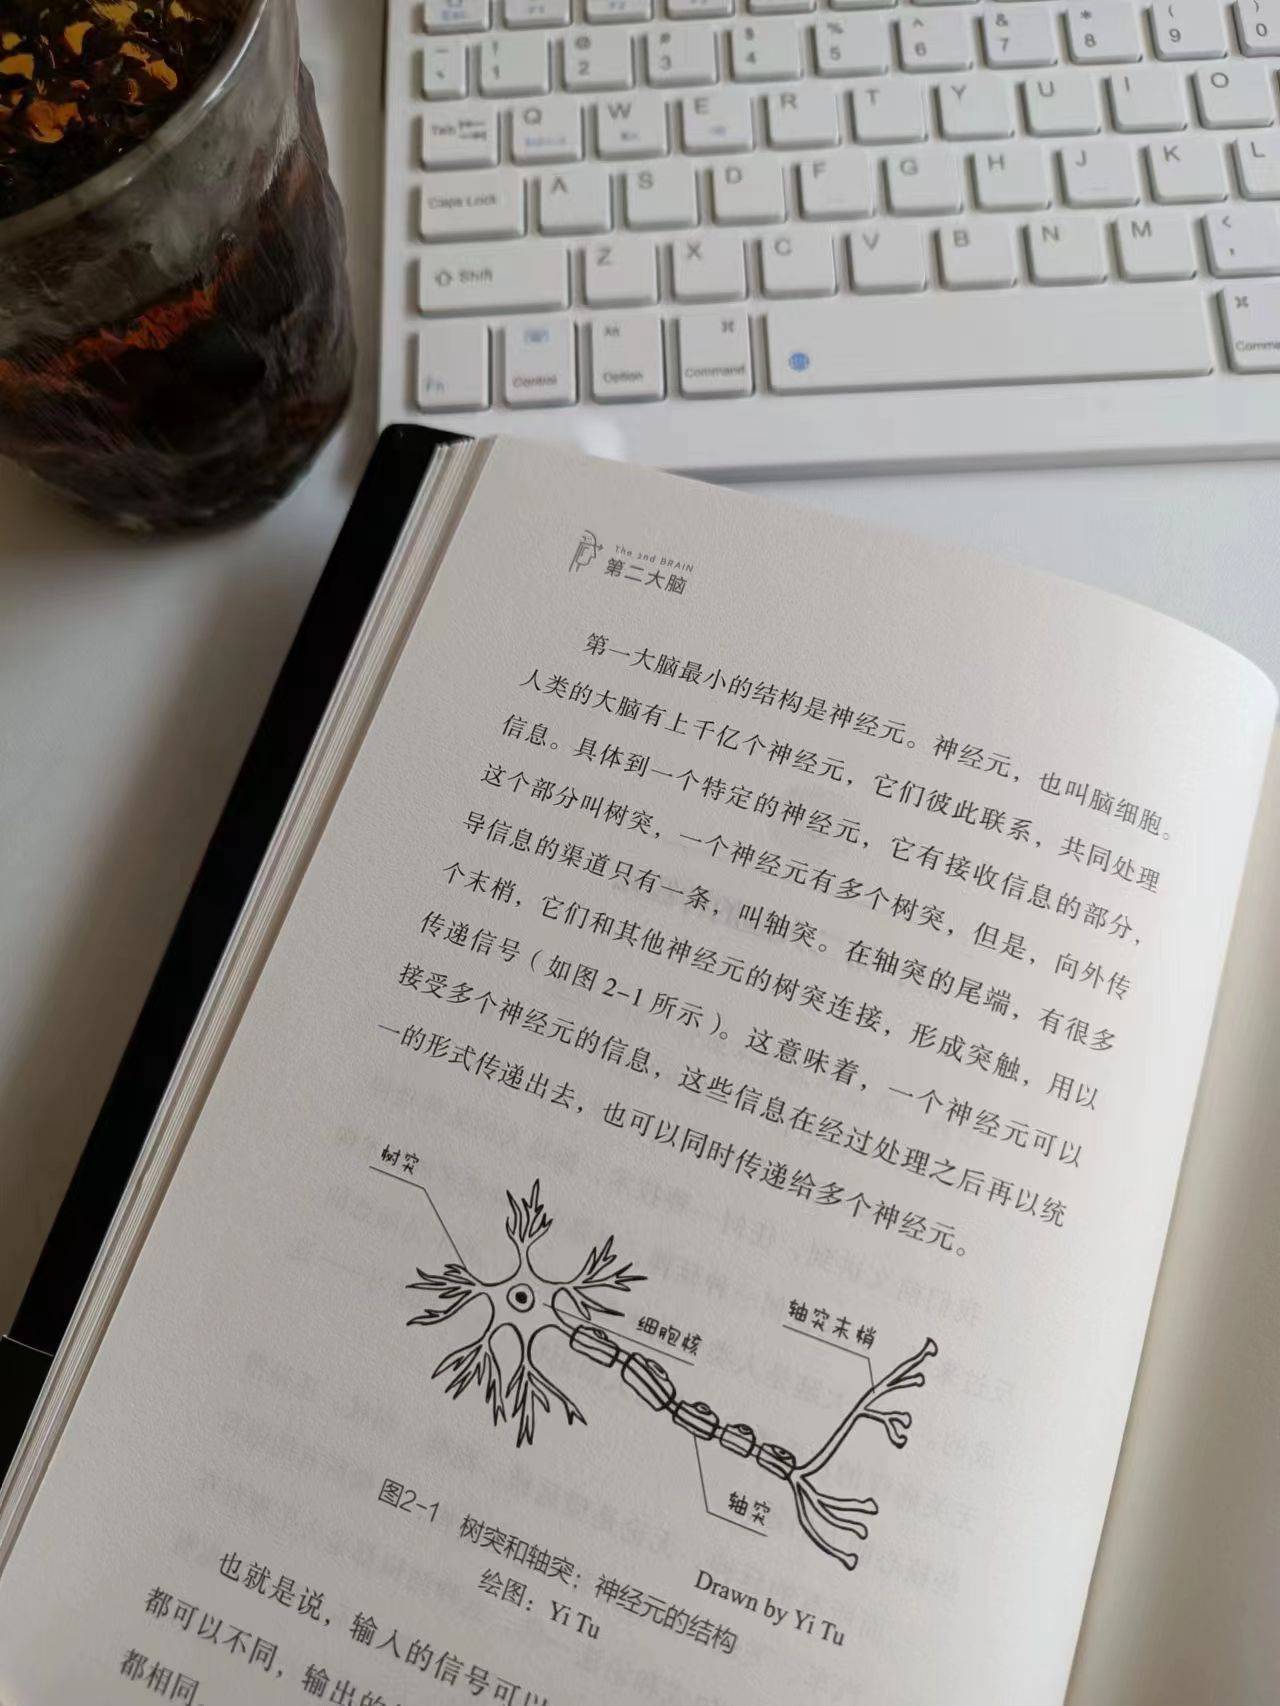 Esc
F1
F2
~ ! @ # $ % ^ & * ( )
1 2 3 4 5 6 7 8 9 0
Tab Q W E R T Y U I O
Caps Lock A S D F G H J K L
Shift Z X C V B N M < ,
Fn Control Alt Option ⌘ Command ⌘
The 2nd BRAIN
第二大脑
第一大脑最小的结构是神经元。神经元，也叫脑细胞。
人类的大脑有上千亿个神经元，它们彼此联系，共同处理
信息。具体到一个特定的神经元，它有接收信息的部分，
这个部分叫树突，一个神经元有多个树突，但是，向外传
导信息的渠道只有一条，叫轴突。在轴突的尾端，有很多
个末梢，它们和其他神经元的树突连接，形成突触，用以
传递信号（如图2-1所示）。这意味着，一个神经元可以
接受多个神经元的信息，这些信息在经过处理之后再以统
一的形式传递出去，也可以同时传递给多个神经元。
树突
细胞核
轴突末梢
轴突
Drawn by Yi Tu
图2-1 树突和轴突：神经元的结构
绘图：Yi Tu
也就是说，输入的信号可以
都可以不同，输出的
都相同